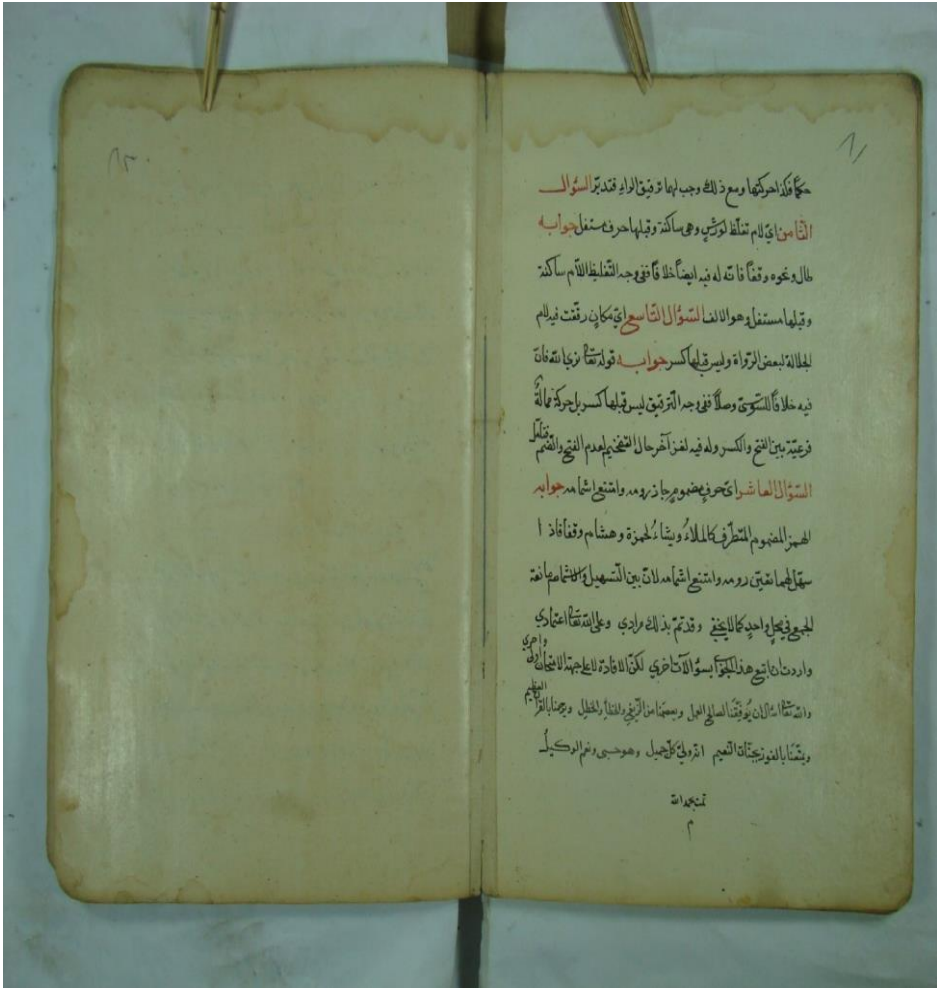 حكمًا فكذا حركتها ومع ذلك وجب لهما ترقيق الراء فتدبّر السّؤال
الثّامن ايّ لام تغلّظ لورش وهى ساكنة وقبلها حرف مستفل جوابه
طال ونحوه وقفًا فانّه له فيه ايضًا خلافًا ففى وجه التّغليظ اللّام ساكنة
وقبلها مستفل وهو الالف السّؤال التّاسع ايّ مكانٍ رقّقت فيه لام
الجلالة لبعض الرّواة وليس قبلها كسر جوابه قوله تعالى نرى الله فانّ
فيه خلافًا للسّوسىّ وصلًا ففى وجه التّرقيق ليس قبلها كسر بل حركة ممالةٌ
فرعيّة بين الفتح والكسر وله فيه لغز آخر حال التفخيم لعدم الفتح والضّم فتأمّل
السّؤال العاشر ايّ حرفٍ مضمومٍ جاز رومه وامتنع اشمامه جوابه
الهمز المضموم المتطرّف كالملاءُ ويشاءُ لحمزة وهشام وقفا فاذا
سهّل لهما تعيّن رومه وامتنع اشمامه لانّ بين التّسهيل والاشمام مانعة
الجمع في محلٍ واحدٍ كما لا يخفى وقد تمّ بذلك مرادي وعلى الله تعالى اعتمادي
واردت ان اتبع هذا الجواب بسؤالآت اخرى لكنّ الافادة لا على جهة الامتحان اولى واحرى
والله تعالى اسال ان يُوفّقنا لصالح العمل ويعصمنا من الزّيغ والخطأ والخطل ويرحمنا بالقرآن العظيم
ويمتّعنا بالفوز بجنّات النّعيم انه وليّ كلّ جميل وهو حسبى ونعم الوكيل
تمت بحمد الله
م